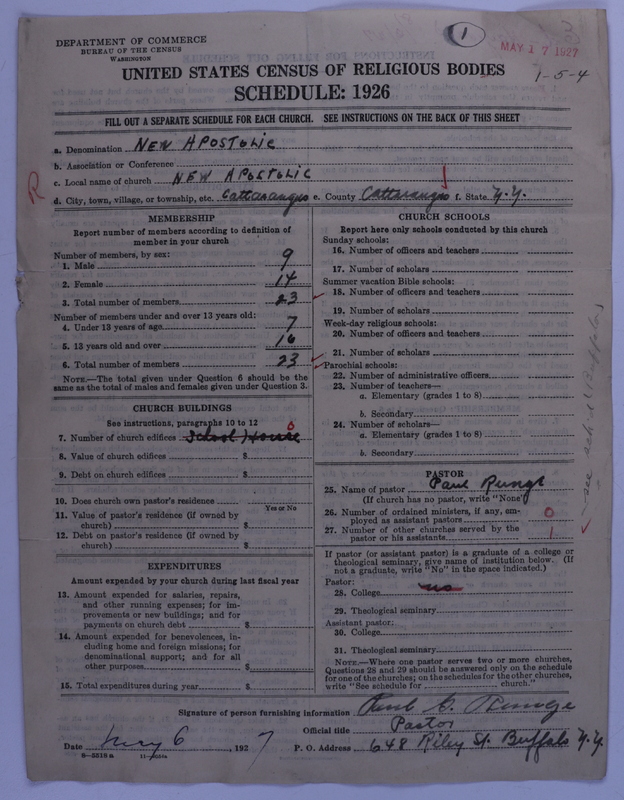 1
MAY 17 1927
DEPARTMENT OF COMMERCE
BUREAU OF THE CENSUS
WASHINGTON
UNITED STATES CENSUS OF RELIGIOUS BODIES
1-5-4
SCHEDULE: 1926
FILL OUT A SEPARATE SCHEDULE FOR EACH CHURCH. SEE INSTRUCTIONS ON THE BACK OF THIS SHEET
a. Denomination NEW APOSTOLIC
b. Association or Conference
c. Local name of church NEW APOSTOLIC
R
d. City, town, village, or township, etc. Cattaraugus e. County Cattaraugus f. State N.Y.
MEMBERSHIP
Report number of members according to definition of
member in your church
Number of members, by sex:
1. Male 9
2. Female 14
3. Total number of members 23
Number of members under and over 13 years old:
4. Under 13 years of age 7
5. 13 years old and over 16
6. Total number of members 23
NOTE.—The total given under Question 6 should be the
same as the total of males and females given under Question 3.
CHURCH BUILDINGS
See instructions, paragraphs 10 to 12
7. Number of church edifices School House 0
8. Value of church edifices $
9. Debt on church edifices $
10. Does church own pastor's residence
Yes or No
11. Value of pastor's residence (if owned by
church) $
12. Debt on pastor's residence (if owned by
church) $
EXPENDITURES
Amount expended by your church during last fiscal year
13. Amount expended for salaries, repairs,
and other running expenses; for im-
provements or new buildings; and for
payments on church debt $
14. Amount expended for benevolences, in-
cluding home and foreign missions; for
denominational support; and for all
other purposes $
15. Total expenditures during year $
CHURCH SCHOOLS
Report here only schools conducted by this church
Sunday schools:
16. Number of officers and teachers
17. Number of scholars
Summer vacation Bible schools:
18. Number of officers and teachers
19. Number of scholars
Week-day religious schools:
20. Number of officers and teachers
21. Number of scholars
Parochial schools:
22. Number of administrative officers
23. Number of teachers—
a. Elementary (grades 1 to 8)
b. Secondary
24. Number of scholars—
a. Elementary (grades 1 to 8)
b. Secondary
PASTOR
25. Name of pastor Paul Runge
(If church has no pastor, write "None")
26. Number of ordained ministers, if any, em-
ployed as assistant pastors 0
27. Number of other churches served by the
pastor or his assistants 1
see sched (Buffalo)
If pastor (or assistant pastor) is a graduate of a college or
theological seminary, give name of institution below. (If
not a graduate, write "No" in the space indicated.)
Pastor:
28. College no
29. Theological seminary
Assistant pastor:
30. College
31. Theological seminary
NOTE.—Where one pastor serves two or more churches,
Questions 28 and 29 should be answered only on the schedule
for one of the churches; on the schedules for the other churches,
write "See schedule for church."
Signature of person furnishing information Paul C. Runge
Official title Pastor
Date May 6, 1927 P. O. Address 648 Riley St. Buffalo N.Y.